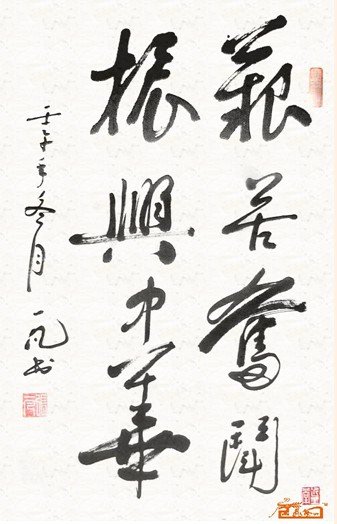 艱苦奮鬥
振興中華
壬午年冬月
一凡書